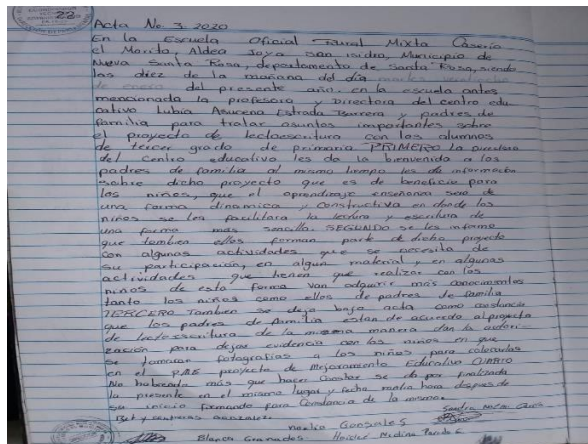 22
Acta No. 3-2020
En la Escuela Oficial Rural Mixta Caserío
el Morito, Aldea Joya San isidro, Municipio de
Nueva Santa Rosa, departamento de Santa Rosa, siendo
las diez de la mañana del día martes
de enero del presente año. en la escuela antes
mencionada la profesora y Directora del centro edu
cativo Lubia Azucena Estrada Barrera y padres de
familia para tratar asuntos importantes sobre
el proyecto de lectoescritura con los alumnos
de tercer grado de primaria PRIMERO La Directora
del Centro educativo les da la bienvenida a los
padres de familia al mismo tiempo les da información
sobre dicho proyecto que es de beneficio para
los niños, que el aprendizaje enseñanza sea de
una forma dinamica y constructiva en donde los
niños se les facilitara la lectura y escritura de
una forma mas sencilla. SEGUNDO se les informo
que tambien ellos forman parte de dicho proyecto
con algunas actividades que se necesita de
su participación, en algun material, en algunas
actividades que tienen que realizar con los
niños de esta forma van adquirir más conocimientos
tanto los niños como ellos de padres de familia
TERCERO Tambien se deja bajo acta como constancia
que los padres de familia estan de acuerdo al proyecto
de lectoescritura de la misma manera dan la autori-
zación para dejar evidencia con los niños en que
se tomaran fotografias a los niños para colocarlas
en el PME proyecto de Mejoramiento Educativo CUARTO
No habiendo más que hacer Constar se da por finalizada
la presente en el mismo lugar y fecha media hora despues de
su inicio firmando para Constancia de la misma.
Sandra
Noelia Gonsales
Blanca Granados Haidee Medina